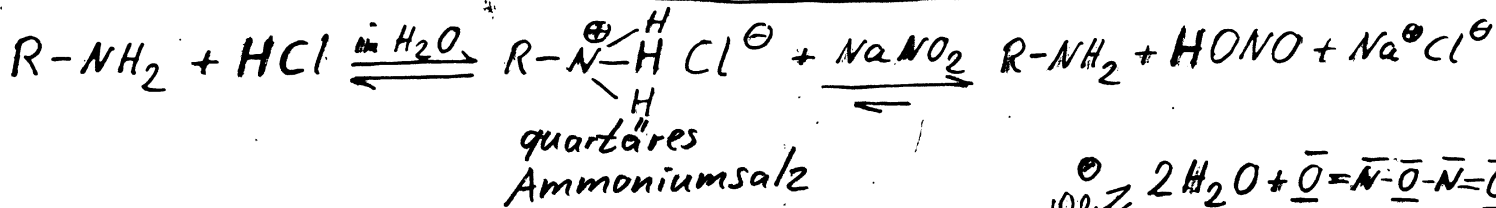 R-NH₂ + HCl ⇌ in H₂O R-N⊕-H Cl⊖ + NaNO₂ ⇌ R-NH₂ + HONO + Na⊕Cl⊖
H
H
quartäres
Ammoniumsalz
⊕ 2H₂O + O=N-O-N=